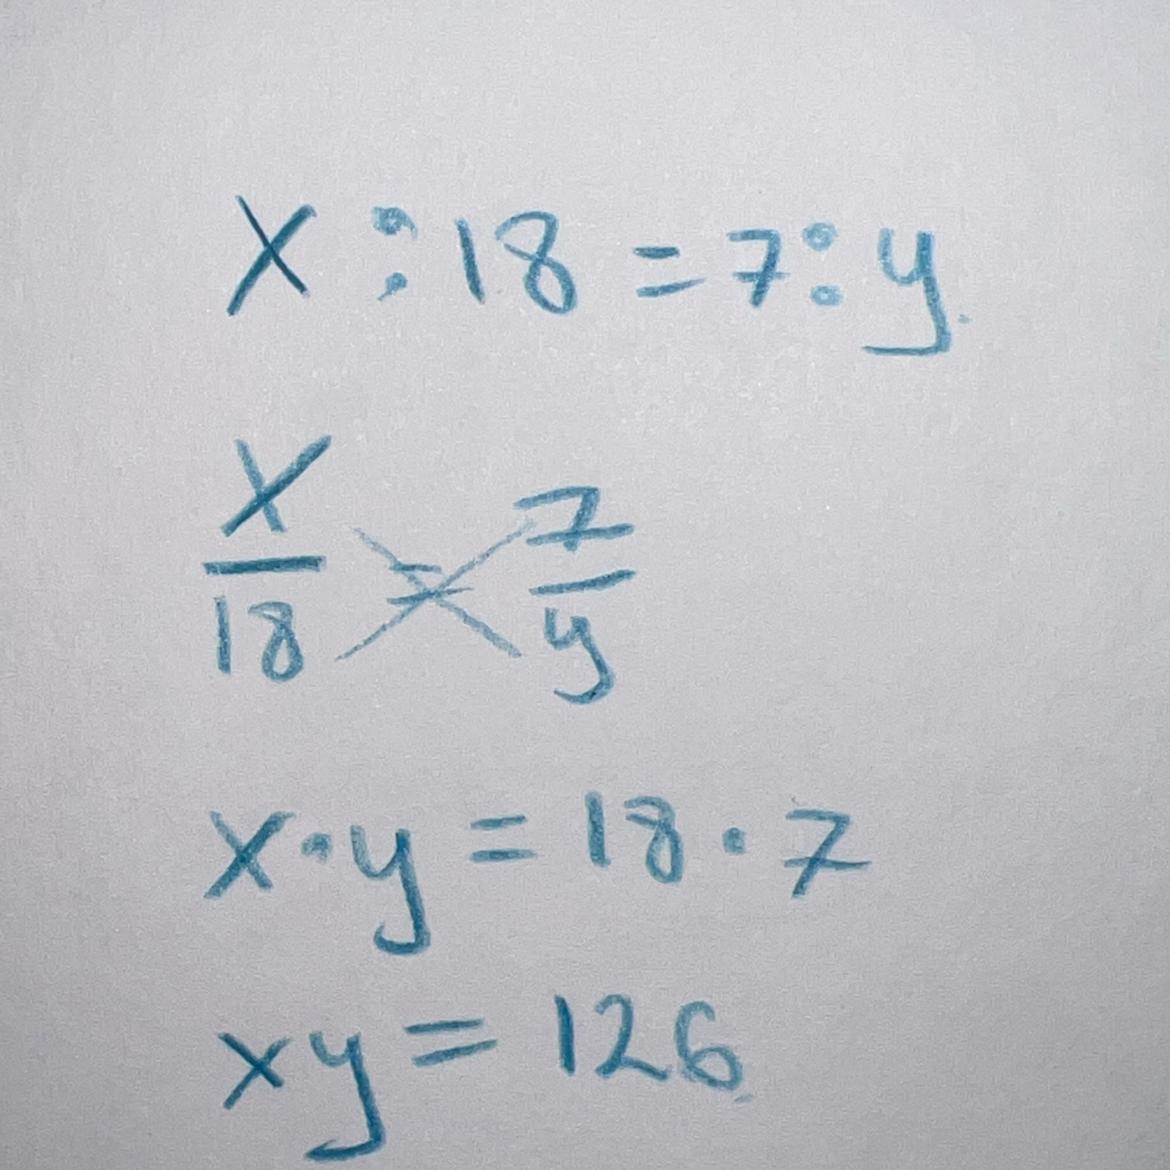 x : 18 = 7 : y
x/18 = 7/y
x · y = 18 · 7
xy = 126